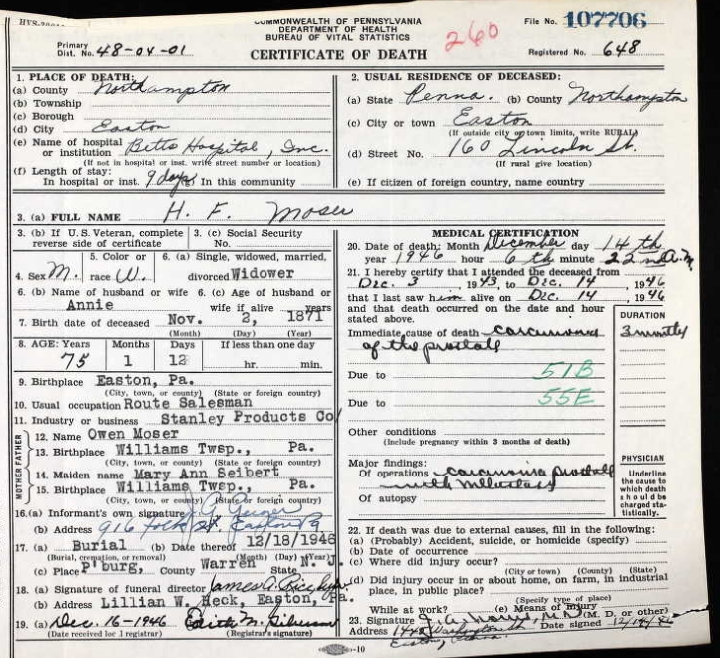 COMMONWEALTH OF PENNSYLVANIA
DEPARTMENT OF HEALTH
BUREAU OF VITAL STATISTICS
CERTIFICATE OF DEATH
Primary
Dist. No. 48-04-01
260
File No. 107706
Registered No. 648
1. PLACE OF DEATH:
(a) County Northampton
(b) Township
(c) Borough
(d) City Easton
(e) Name of hospital
or institution Betts Hospital, Inc.
(If not in hospital or inst. write street number or location)
(f) Length of stay:
In hospital or inst. 9 days In this community
2. USUAL RESIDENCE OF DECEASED:
(a) State Penna. (b) County Northampton
(c) City or town Easton
(If outside city or town limits, write RURAL)
(d) Street No. 160 Lincoln St.
(If rural give location)
(e) If citizen of foreign country, name country
3. (a) FULL NAME H. F. Moser
3. (b) If U.S. Veteran, complete
reverse side of certificate
3. (c) Social Security
No.
4. Sex M.
5. Color or
race W.
6. (a) Single, widowed, married,
divorced Widower
6. (b) Name of husband or wife
Annie
6. (c) Age of husband or
wife if alive years
7. Birth date of deceased Nov. 2, 1871
(Month) (Day) (Year)
8. AGE: Years Months Days If less than one day
75 1 12 hr. min.
9. Birthplace Easton, Pa.
(City, town, or county) (State or foreign country)
10. Usual occupation Route Salesman
11. Industry or business Stanley Products Co/
MOTHER FATHER
12. Name Owen Moser
13. Birthplace Williams Twsp., Pa.
(City, town, or county) (State or foreign country)
14. Maiden name Mary Ann Seibert
15. Birthplace Williams Twsp., Pa.
(City, town, or county) (State or foreign country)
16. (a) Informant's own signature Geiger
(b) Address 916 St. Easton Pa
17. (a) Burial (b) Date thereof 12/18/1946
(Burial, cremation, or removal) (Month) (Day) (Year)
(c) Place P'burg, County Warren State N. J.
18. (a) Signature of funeral director James A.
(b) Address Lillian W. Heck, Easton, Pa.
19. (a) Dec. 16-1946 Edith M.
(Date received local registrar) (Registrar's signature)
MEDICAL CERTIFICATION
20. Date of death: Month December day 14th
year 1946 hour 6th minute 22nd A.M.
21. I hereby certify that I attended the deceased from
Dec. 3 1943, to Dec. 14, 1946
that I last saw him alive on Dec. 14, 1946
and that death occurred on the date and hour
stated above.
DURATION
Immediate cause of death carcinoma
of the prostate
3 months
Due to 51B
Due to 55E
Other conditions
(Include pregnancy within 3 months of death)
Major findings:
Of operations carcinoma prostate
with
Of autopsy
PHYSICIAN
Underline
the cause to
which death
should be
charged sta-
tistically.
22. If death was due to external causes, fill in the following:
(a) (Probably) Accident, suicide, or homicide (specify)
(b) Date of occurrence
(c) Where did injury occur?
(City or town) (County) (State)
(d) Did injury occur in or about home, on farm, in industrial
place, in public place?
(Specify type of place)
While at work? (e) Means of injury
23. Signature M.D. (M. D. or other)
Address 1448 Washington St. Date signed 12/14/46
Easton, Penna.
10